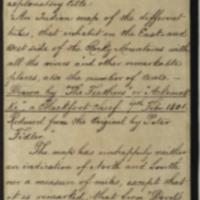 explanatory title:
"An Indian map of the different
tribes, that inhabit on the East and
West side of the Rocky Mountains with
all the rivers and other remarkable
places, also the number of tents. –
Drawn by "The Feathers" or "
Ki" a Blackfoot Chief 7th Feby. 1801.
Reduced from the Original by Peter
Fidler."
The map has unhappily neither
an indication of north and South
nor a measure of miles, except that
it is remarked, that from